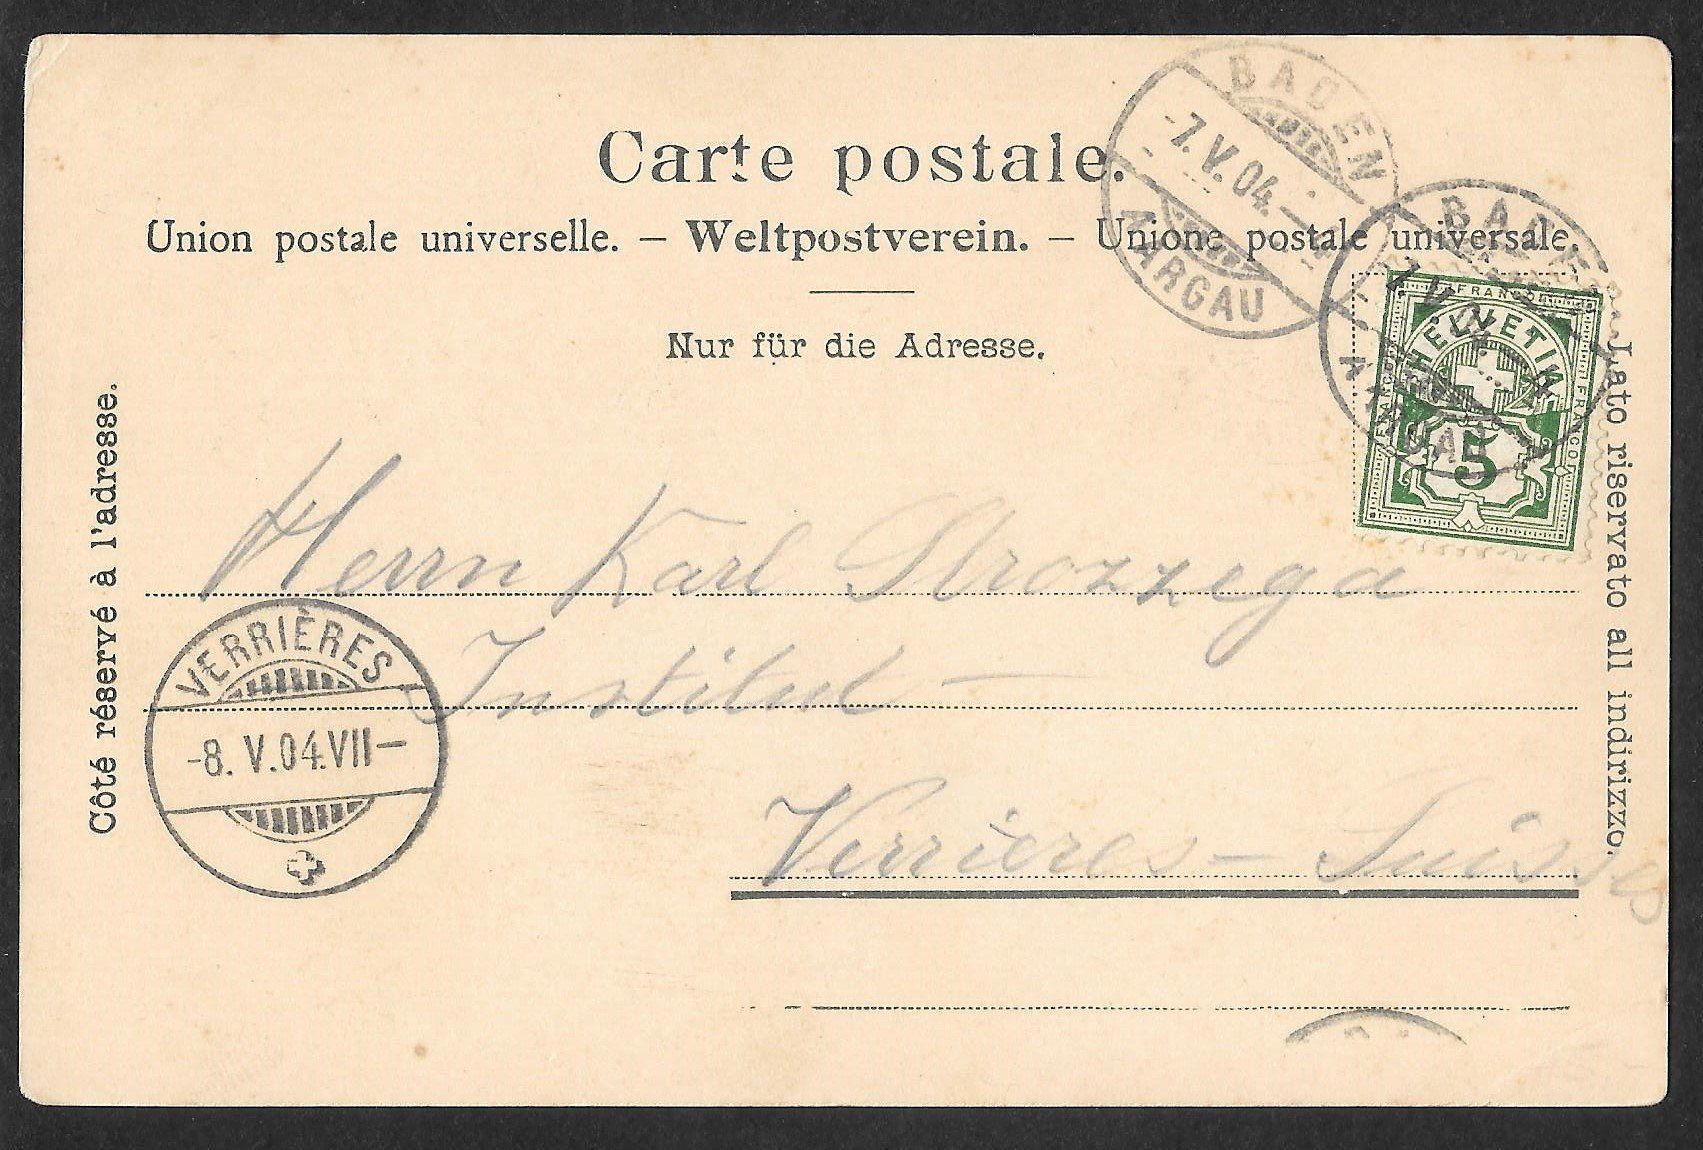 Carte postale.
Union postale universelle. – Weltpostverein. – Unione postale universale.
Nur für die Adresse.
Côté réservé à l'adresse.
Lato riservato all indirizzo.
BADEN
-7.V.04.–
AARGAU
BADEN
7.V.04
AARGAU
FRANCO
FRANCO
FRANCO
HELVETIA
5
Herrn Karl Strozzega
Institut –
Verrières – Suisses
VERRIÈRES
-8. V.04.VII–